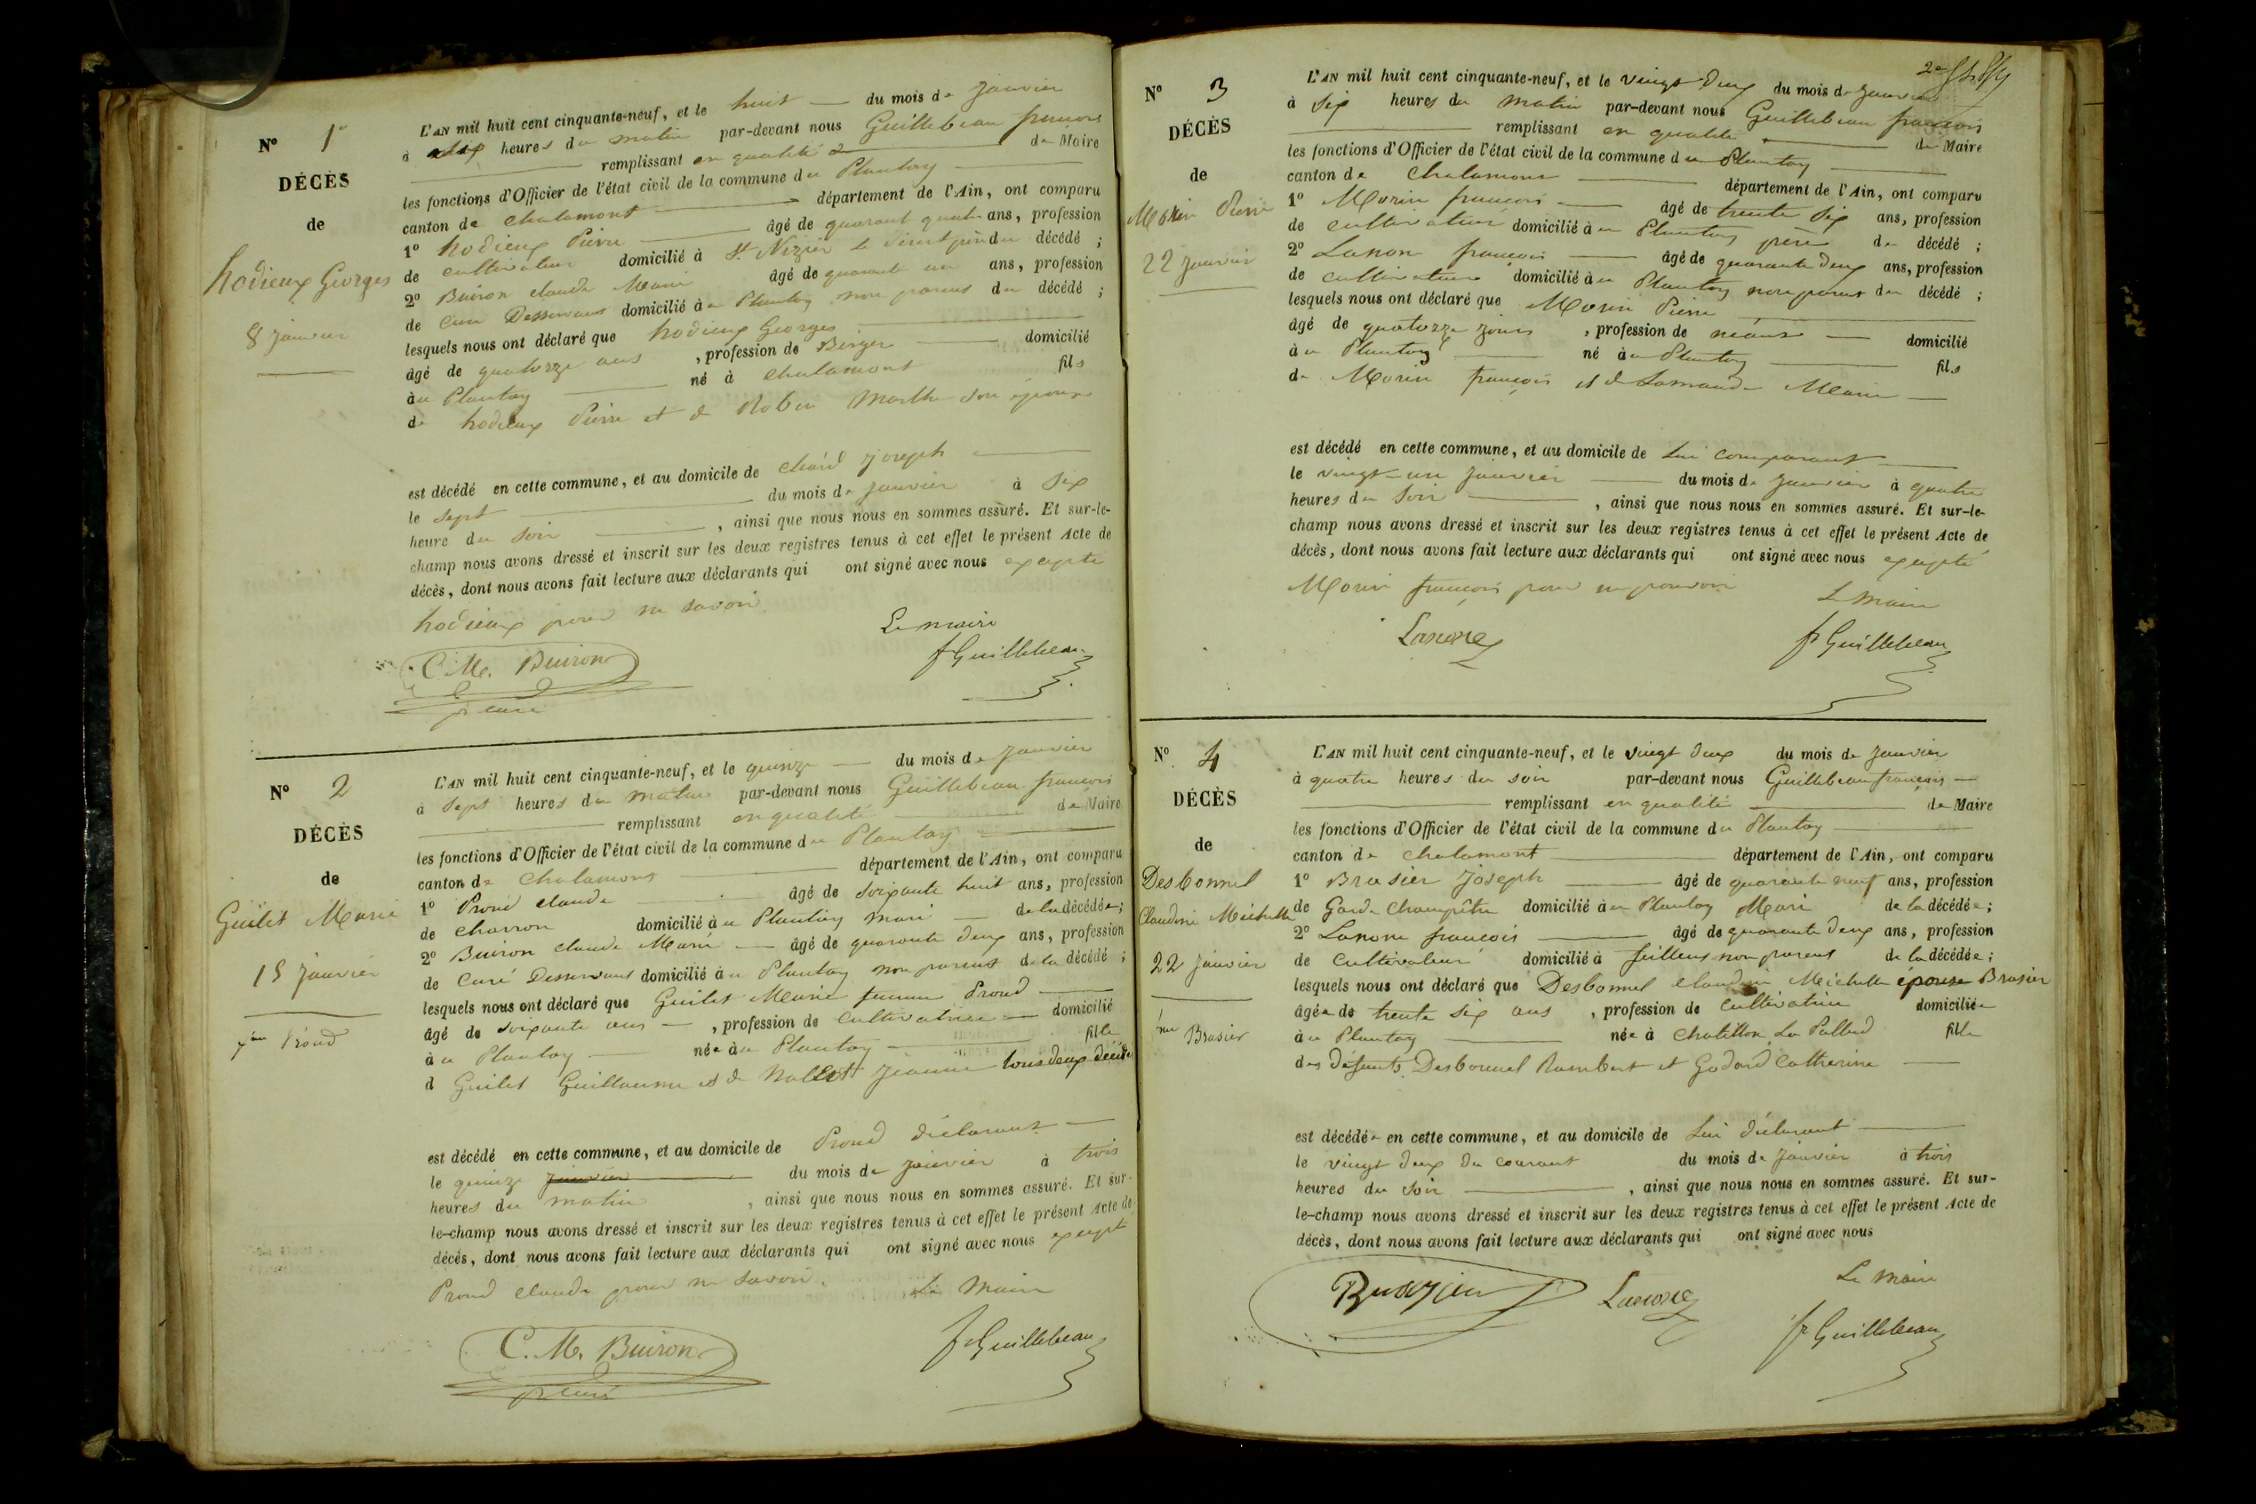 N° 1er
DÉCÈS
de
hodieux Georges
8 janvier
L'AN mil huit cent cinquante-neuf, et le huit du mois de janvier
à heures du matin par-devant nous Guillebeau francois
remplissant en qualité de Maire
les fonctions d'Officier de l'état civil de la commune du Plantay
canton de chalamont département de l'Ain, ont comparu
1° hodieux Pierre âgé de quarant quatre ans, profession
de cultivateur domicilié à St Nizier le Désert père du décédé ;
2° Buiron claude Marie âgé de quarante un ans, profession
de cure Desservant domicilié à u Plantay non parent du décédé ;
lesquels nous ont déclaré que hodieux Georges
âgé de quatorze ans , profession de Berger domicilié
à u Plantay né à chalamont fils
de hodieux Pierre et de Robin Marthe son épouse
est décédé en cette commune, et au domicile de joseph
le sept du mois de janvier à six
heure du soir , ainsi que nous nous en sommes assuré. Et sur-le-
champ nous avons dressé et inscrit sur les deux registres tenus à cet effet le présent Acte de
décès, dont nous avons fait lecture aux déclarants qui ont signé avec nous excepté
hodieux pour ne savoir
Le maire
C. M. Buiron
fs Guillebeau
p. curé
N° 2
DÉCÈS
de
Guilet Marie
15 janvier
fme Proud
L'AN mil huit cent cinquante-neuf, et le quinze du mois de janvier
à sept heures du matin par-devant nous Guillebeau francois
remplissant en qualité de Maire
les fonctions d'Officier de l'état civil de la commune du Plantay
canton de chalamont département de l'Ain, ont comparu
1° Proud claude âgé de soixante huit ans, profession
de charron domicilié à u Plantay mari de la décédée ;
2° Buiron claude Marie âgé de quarante deux ans, profession
de curé Desservant domicilié à u Plantay non parent de la décédé ;
lesquels nous ont déclaré que Guilet Marie femme Proud
âgé de soixante ans , profession de cultivatrice domicilié
à u Plantay née à u Plantay fille
d Guilet Guillaume et de Jeanne tous deux décédé
est décédé en cette commune, et au domicile de Proud déclarant
le quinze janvier du mois de janvier à trois
heures du matin , ainsi que nous nous en sommes assuré. Et sur-
le-champ nous avons dressé et inscrit sur les deux registres tenus à cet effet le présent Acte de
décès, dont nous avons fait lecture aux déclarants qui ont signé avec nous except
Proud claude pour ne savoir.
Le Maire
C. M. Buiron
fs Guillebeau
p. curé
N° 3
DÉCÈS
de
Morin Pierre
22 janvier
L'AN mil huit cent cinquante-neuf, et le vingt-deux du mois de janvier
à six heures du matin par-devant nous Guillebeau francois
remplissant en qualité de Maire
les fonctions d'Officier de l'état civil de la commune du Plantay
canton de chalamont département de l'Ain, ont comparu
1° Morin francois âgé de trente six ans, profession
de cultivateur domicilié à u Plantay père du décédé ;
2° Lanone francois âgé de quarante deux ans, profession
de cultivateur domicilié à u Plantay non parent du décédé ;
lesquels nous ont déclaré que Morin Pierre
âgé de quatorze jours , profession de néant domicilié
à u Plantay né à u Plantay fils
de Morin françois et de Lamande Marie
est décédé en cette commune, et au domicile de lui comparant
le vingt-un janvier du mois de janvier à quatre
heures du soir , ainsi que nous nous en sommes assuré. Et sur-le-
champ nous avons dressé et inscrit sur les deux registres tenus à cet effet le présent Acte de
décès, dont nous avons fait lecture aux déclarants qui ont signé avec nous excepté
Morin françois pour ne pouvoir
Le Maire
Lanone
fs Guillebeau
N° 4
DÉCÈS
de
Desbonnel
Claudine Michelle
22 janvier
fme Brasier
L'AN mil huit cent cinquante-neuf, et le vingt deux du mois de janvier
à quatre heures du soir par-devant nous Guillebeau françois
remplissant en qualité de Maire
les fonctions d'Officier de l'état civil de la commune du Plantay
canton de chalamont département de l'Ain, ont comparu
1° Brasier Joseph âgé de quarante neuf ans, profession
de Garde Champêtre domicilié à u Plantay Mari de la décédée ;
2° Lanone francois âgé de quarante deux ans, profession
de cultivateur domicilié à non parent de la décédée ;
lesquels nous ont déclaré que Desbonnel claudine Michelle épouse Brasier
âgée de trente six ans , profession de cultivatrice domiciliée
à u Plantay née à chatillon La Pallud fille
des défunts Desbonnel Rambert et Godard Catherine
est décédée en cette commune, et au domicile de lui déclarant
le vingt deux du courant du mois de janvier à trois
heures du soir , ainsi que nous nous en sommes assuré. Et sur-
le-champ nous avons dressé et inscrit sur les deux registres tenus à cet effet le présent Acte de
décès, dont nous avons fait lecture aux déclarants qui ont signé avec nous
Le Maire
Lanone
fs Guillebeau